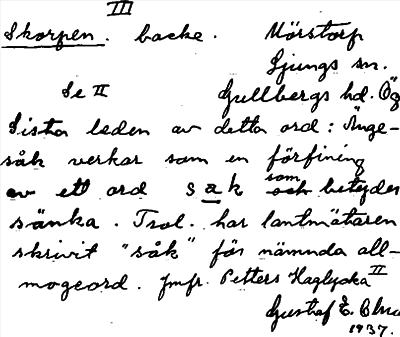 III
Skorpen. backe. Mörstorp
Ljungs sn.
Se II Gullbergs hd. Ög
Sista leden av detta ord: Änge-
såk verkar som en förfining
av ett ord sak som och betyder
sänka. Trol. har lantmätaren
skrivit "såk" för nämnda all-
mogeord. Jmfr. Petters Haglycka II
Gustaf E.
1937.